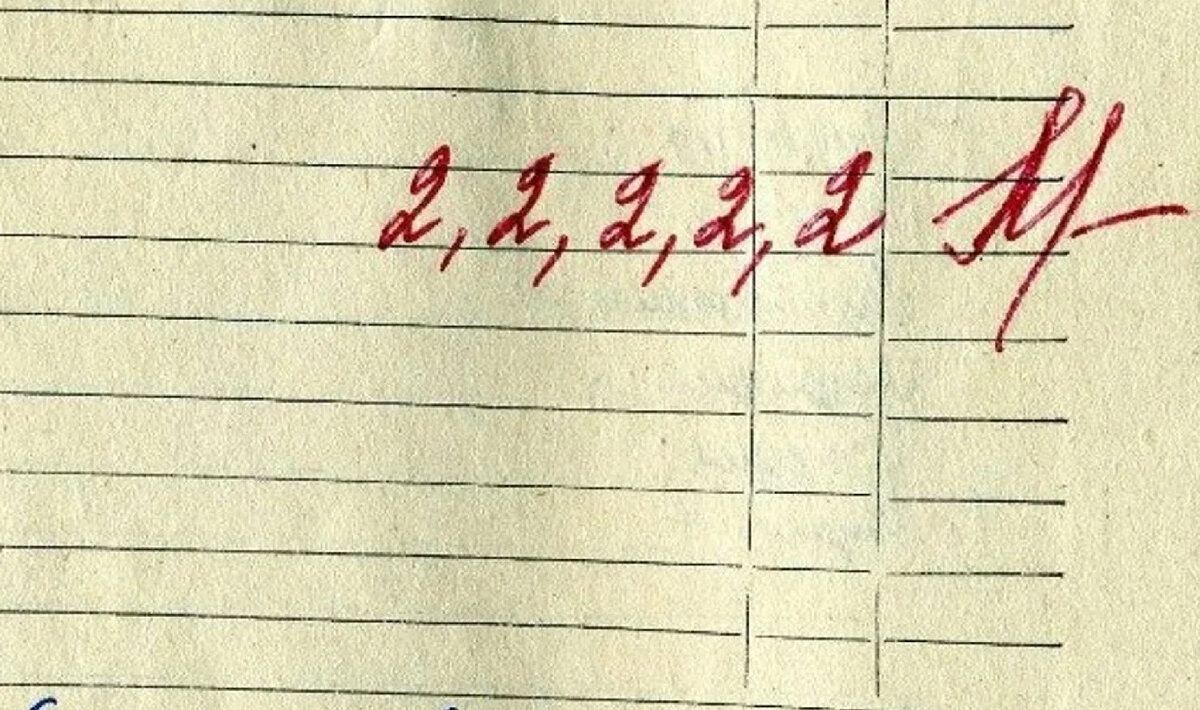 2, 2, 2, 2, 2